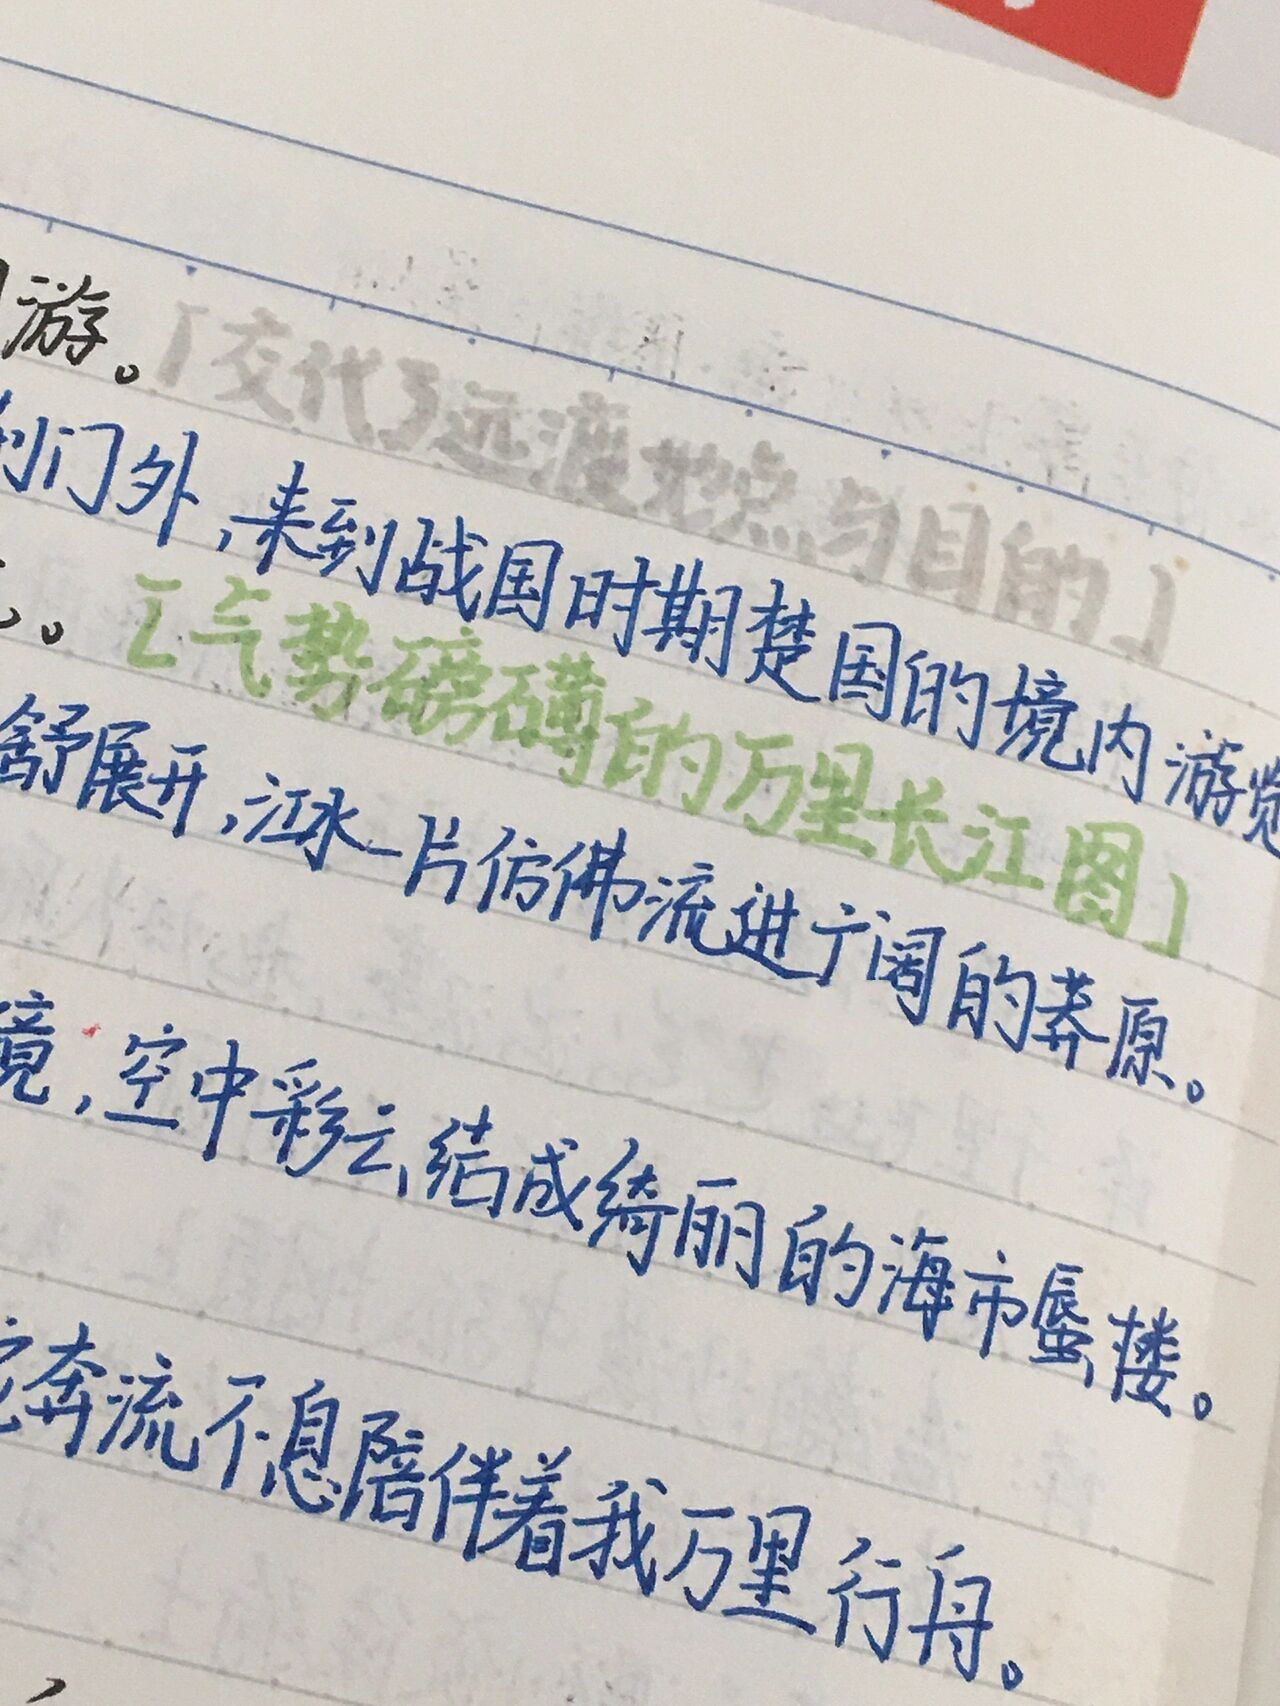 游。「交代了远渡地点与目的」
门外,来到战国时期楚国的境内游览
。「气势磅礴的万里长江图」
舒展开,江水一片仿佛流进广阔的莽原。
境,空中彩云,结成绮丽的海市蜃楼。
奔流不息陪伴着我万里行舟。